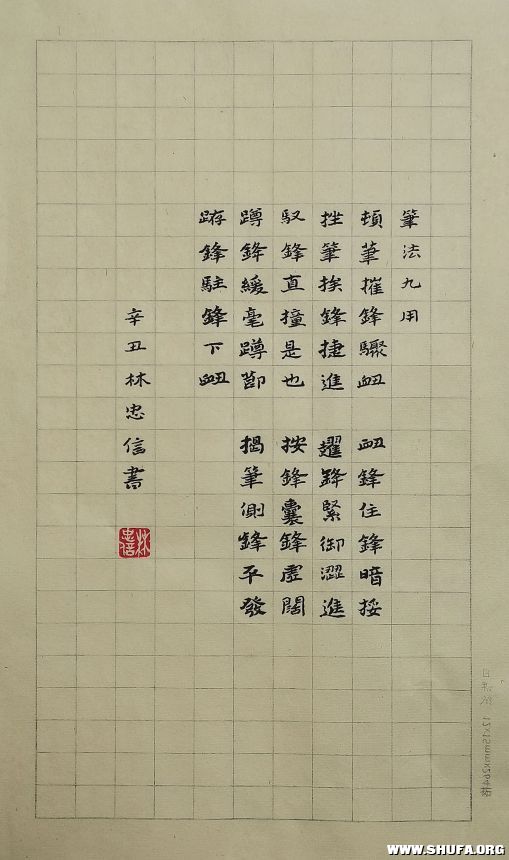 筆法九用
頓筆摧鋒驟衄　衄鋒住鋒暗挼
挫筆挨鋒捷進　趯鋒緊御澀進
馭鋒直撞是也　按鋒囊鋒虛闊
蹲鋒緩毫蹲節　揭筆側鋒平發
跡鋒駐鋒下衄
辛丑林忠信書
林忠信
WWW.SHUFA.ORG